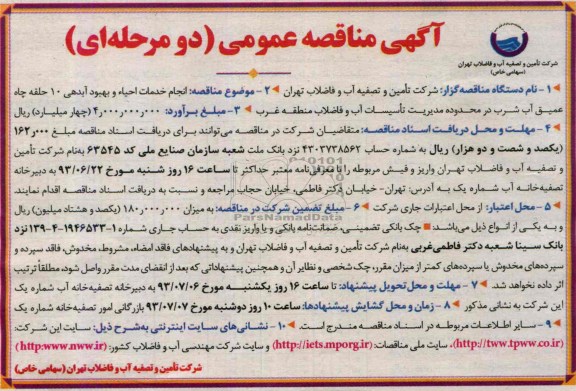 آگهی مناقصه عمومی (دو مرحله‌ای)
شرکت تأمین و تصفیه آب و فاضلاب تهران
(سهامی خاص)
۱- نام دستگاه مناقصه‌گزار: شرکت تأمین و تصفیه آب و فاضلاب تهران ۲- موضوع مناقصه: انجام خدمات احیاء و بهبود آبدهی ۱۰ حلقه چاه
عمیق آب شرب در محدوده مدیریت تأسیسات آب و فاضلاب منطقه غرب ۳- مبلغ برآورد: ۴٫۰۰۰٫۰۰۰٫۰۰۰ (چهار میلیارد) ریال
۴- مهلت و محل دریافت اسناد مناقصه: متقاضیان شرکت در مناقصه می‌توانند برای دریافت اسناد مناقصه مبلغ ۱۶۲٫۰۰۰
(یکصد و شصت و دو هزار) ریال به شماره حساب ۴۳۰۳۷۳۸۵۶۲ نزد بانک ملت شعبه سازمان صنایع ملی کد ۶۳۵۴۵ به‌نام شرکت تأمین
و تصفیه آب و فاضلاب تهران واریز و فیش مربوطه را با معرفی‌نامه معتبر حداکثر تا ساعت ۱۶ روز شنبه مورخ ۹۳/۰۶/۲۲ به دبیرخانه
تصفیه‌خانه آب شماره یک به آدرس: تهران- خیابان دکتر فاطمی، خیابان حجاب مراجعه و نسبت به دریافت اسناد مناقصه اقدام نمایند.
۵- محل اعتبار: از محل اعتبارات جاری شرکت ۶- مبلغ تضمین شرکت در مناقصه: به میزان ۱۸۰٫۰۰۰٫۰۰۰ (یکصد و هشتاد میلیون) ریال
و به یکی از انواع ذیل می‌باشد: چک بانکی تضمینی، ضمانت‌نامه بانکی و یا واریز نقدی به حساب جاری شماره ۱-۱۹۴۶۵۳۳-۴-۱۳۹ نزد
بانک سینا شعبه دکتر فاطمی‌غربی به‌نام شرکت تأمین و تصفیه آب و فاضلاب تهران و به پیشنهادهای فاقد امضاء، مشروط، مخدوش، فاقد سپرده و
سپرده‌های مخدوش یا سپرده‌های کمتر از میزان مقرر، چک شخصی و نظایر آن و همچنین پیشنهاداتی که بعد از انقضای مدت مقرر واصل شود، مطلقاً ترتیب
اثر داده نخواهد شد. ۷- مهلت و محل تحویل پیشنهاد: تا ساعت ۱۶ روز یکشنبه مورخ ۹۳/۰۷/۰۶ به دبیرخانه تصفیه‌خانه آب شماره یک
این شرکت به نشانی مذکور ۸- زمان و محل گشایش پیشنهادها: ساعت ۱۰ روز دوشنبه مورخ ۹۳/۰۷/۰۷ بازرگانی امور تصفیه‌خانه شماره یک
۹- سایر اطلاعات مربوطه در اسناد مناقصه مندرج است. ۱۰- نشانی‌های سایت اینترنتی به‌شرح ذیل: سایت این شرکت:
(http://tww.tpww.co.ir)، سایت ملی مناقصات: (http://iets.mporg.ir) و سایت شرکت مهندسی آب و فاضلاب کشور: (http:www.nww.ir)
شرکت تأمین و تصفیه آب و فاضلاب تهران (سهامی خاص)
ParsNamadData